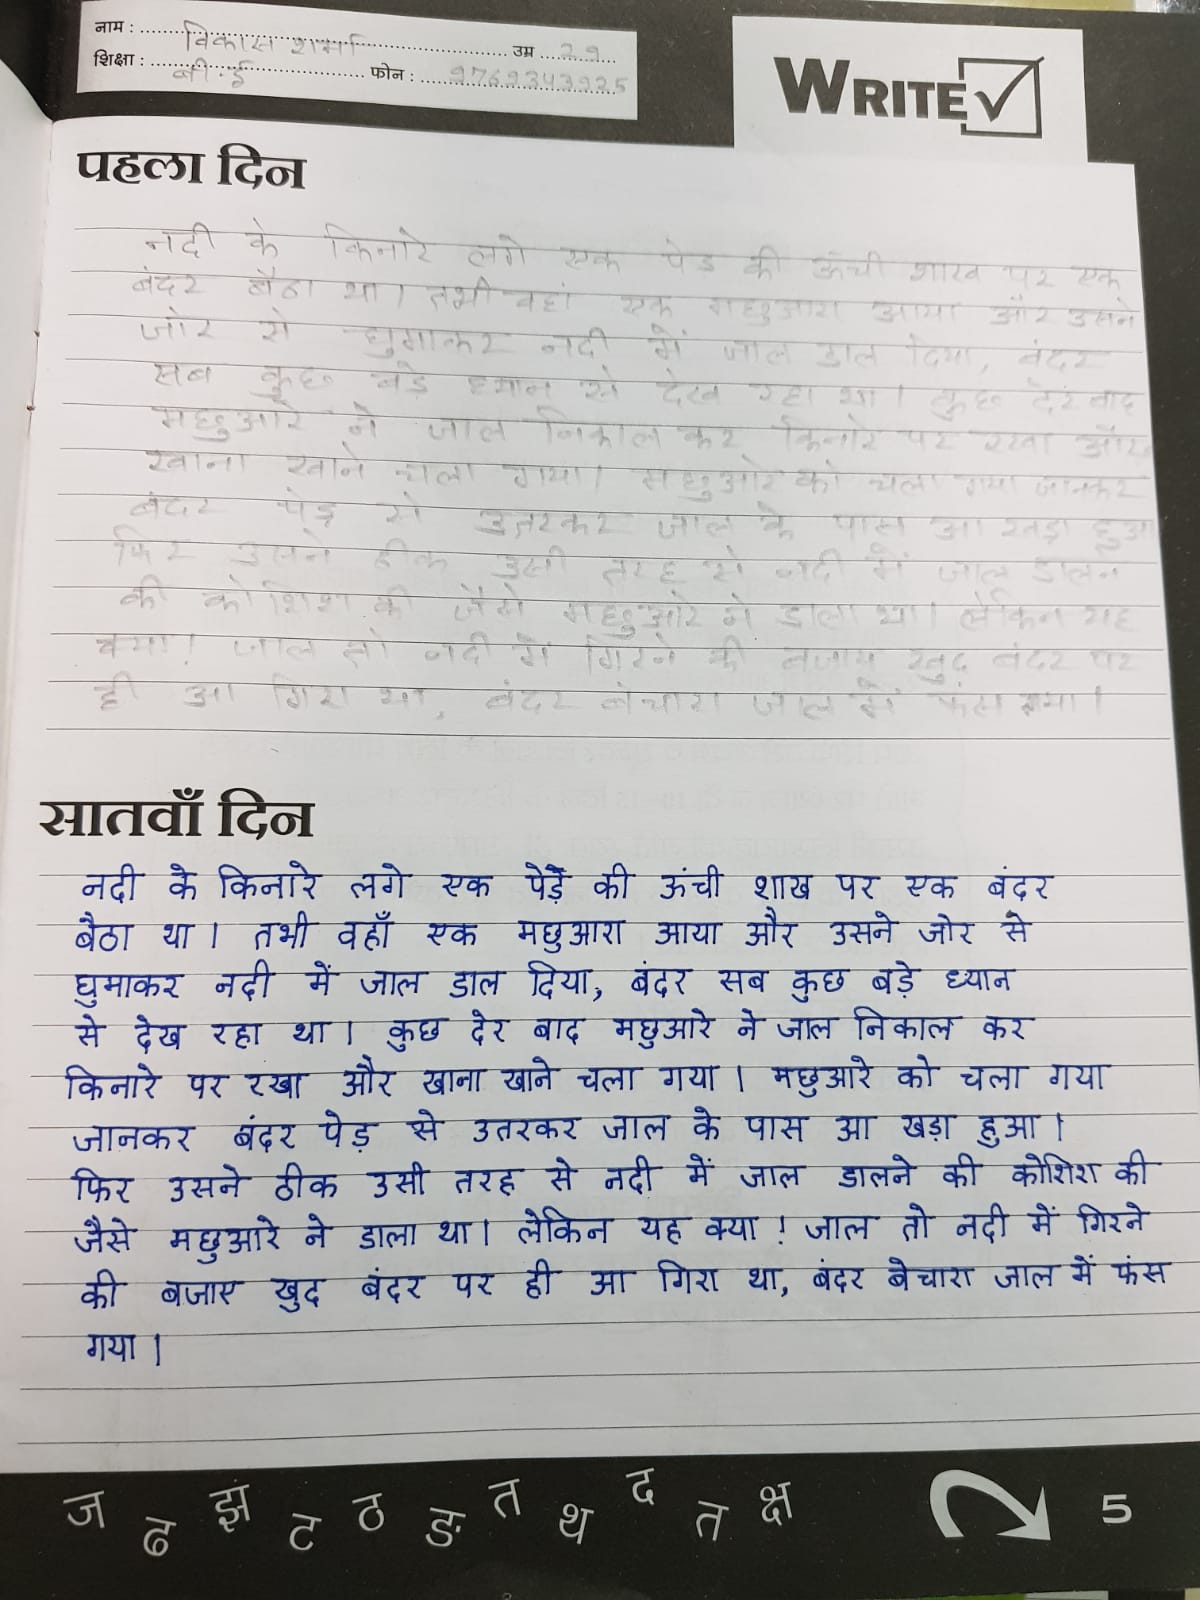 नाम : विकास शर्मा उम्र 29
शिक्षा : बी.ई फोन :
WRITE
पहला दिन
नदी के किनारे लगे एक पेड की ऊंची शाख पर एक
बंदर बैठा था। तभी वहां एक मछुआरा आया और उसने
जोर से घुमाकर नदी में जाल डाल दिया, बंदर
सब कुछ बडे ध्यान से देख रहा था। कुछ देर बाद
मछुआरे ने जाल निकाल कर किनारे पर रखा और
खाना खाने चला गया। मछुओरे को चला गया जानकर
बंदर पेड़ से उतरकर जाल के पास आ खड़ा हुआ
फिर उसने ठीक उसी तरह से नदी में जाल डालन
की कोशिश की जैसे मछुओरे ने डाला था। लेकिन यह
क्या! जाल तो नदी में गिरने की बजाय खुद बंदर पर
ही आ गिरा था, बंदर बेचारा जाल में फंस गया।
सातवाँ दिन
नदी के किनारे लगे एक पेड़ की ऊंची शाख पर एक बंदर
बैठा था। तभी वहाँ एक मछुआरा आया और उसने जोर से
घुमाकर नदी में जाल डाल दिया, बंदर सब कुछ बड़े ध्यान
से देख रहा था। कुछ देर बाद मछुआरे ने जाल निकाल कर
किनारे पर रखा और खाना खाने चला गया। मछुआरे को चला गया
जानकर बंदर पेड़ से उतरकर जाल के पास आ खड़ा हुआ।
फिर उसने ठीक उसी तरह से नदी में जाल डालने की कोशिश की
जैसे मछुआरे ने डाला था। लेकिन यह क्या! जाल तो नदी में गिरने
की बजाए खुद बंदर पर ही आ गिरा था, बंदर बेचारा जाल में फंस
गया।
ज ढ झ ट ठ ङ त थ द त क्ष 5